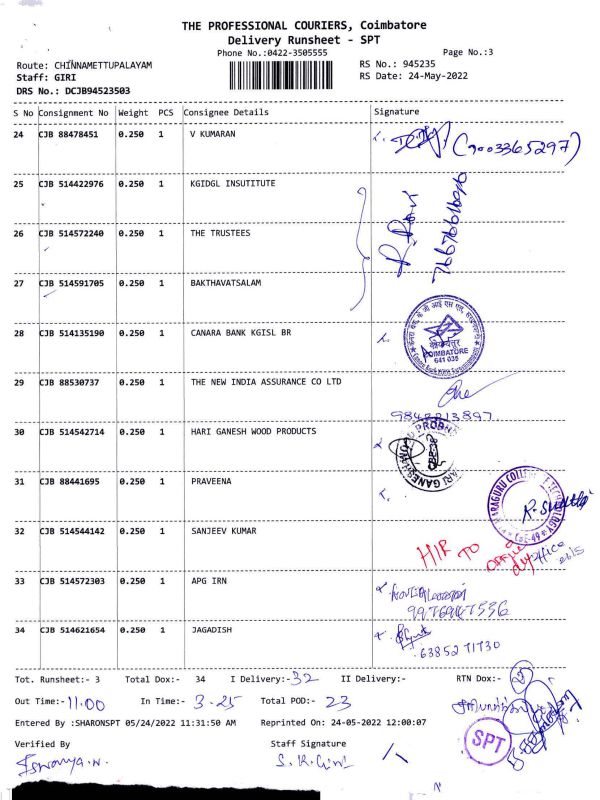 THE PROFESSIONAL COURIERS, Coimbatore
Delivery Runsheet - SPT
Phone No.:0422-3505555
Page No.:3
Route: CHINNAMETTUPALAYAM
RS No.: 945235
Staff: GIRI
RS Date: 24-May-2022
DRS No.: DCJB94523503
S No Consignment No Weight PCS Consignee Details Signature
24 CJB 88478451 0.250 1 V KUMARAN
(9003365297)
25 CJB 514422976 0.250 1 KGIDGL INSUTITUTE
26 CJB 514572240 0.250 1 THE TRUSTEES
R. Ravi
27 CJB 514591705 0.250 1 BAKTHAVATSALAM
28 CJB 514135190 0.250 1 CANARA BANK KGISL BR
COIMBATORE
641 035
29 CJB 88530737 0.250 1 THE NEW INDIA ASSURANCE CO LTD
9843213897
30 CJB 514542714 0.250 1 HARI GANESH WOOD PRODUCTS
HARI GANESH WOOD PRODUCTS
CBE-
31 CJB 88441695 0.250 1 PRAVEENA
KUMARAGURU COLLEGE OF TECHNOLOGY
CBE-49
32 CJB 514544142 0.250 1 SANJEEV KUMAR
TO
OFFICE
33 CJB 514572303 0.250 1 APG IRN
34 CJB 514621654 0.250 1 JAGADISH
6385271730
Tot. Runsheet:- 3 Total Dox:- 34 I Delivery:- 32 II Delivery:- RTN Dox:- 2
Out Time:- 11.00 In Time:- 3-25 Total POD:- 23
Entered By :SHARONSPT 05/24/2022 11:31:50 AM Reprinted On: 24-05-2022 12:00:07
SPT
Verified By Staff Signature
Iswarya.N. S.K.Giri